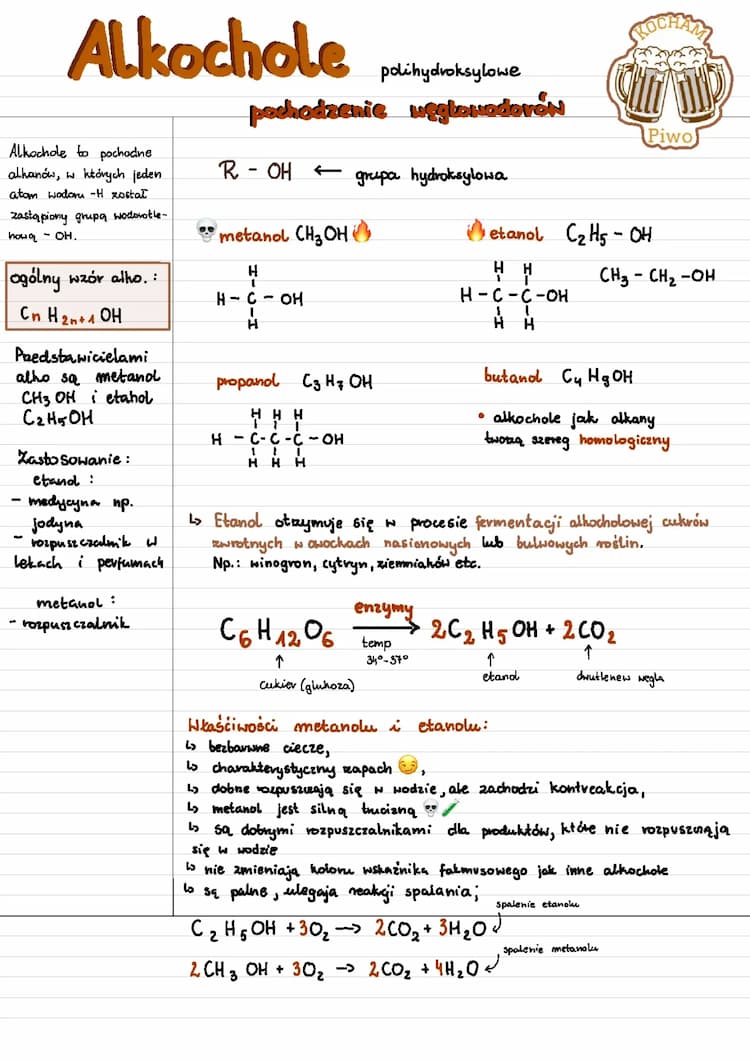 Alkochole
polihydroksylowe
KOCHAM
Piwo
pochodzenie węglowodorów
Alkochole to pochodne
alkanów, w których jeden
atom wodoru -H został
zastąpiony grupą wodorotle-
nową - OH.
ogólny wzór alko. :
Cn H2n+1 OH
Przedstawicielami
alko są metanol
CH3 OH i etanol
C2H5OH
Zastosowanie :
etanol :
- medycyna np.
jodyna
- rozpuszczalnik w
lekach i perfumach
metanol :
- rozpuszczalnik
R - OH ← grupa hydroksylowa
💀 metanol CH3OH 🔥
H
H - C - OH
H
🔥 etanol C2H5 - OH
CH3 - CH2 - OH
H H
H - C - C - OH
H H
propanol C3H7OH
H H H
H - C - C - C - OH
H H H
butanol C4H9OH
• alkochole jak alkany
tworzą szereg homologiczny
↳ Etanol otrzymuje się w procesie fermentacji alkocholowej cukrów
zwrotnych w owockach nasionowych lub bulwowych roślin.
Np.: winogron, cytryn, ziemniaków etc.
enzymy
C6H12O6 → 2C2H5OH + 2CO2
temp
34°-37°
↑ ↑ ↑
cukier (glukoza) etanol dwutlenew węgla
Właśćiwości metanolu i etanolu:
↳ bezbarwne ciecze,
↳ charakterystyczny zapach 😏,
↳ dobne rozpuszczają się w wodzie, ale zachodzi kontreakcja,
↳ metanol jest silną trucizną 💀🧪
↳ są dobrymi rozpuszczalnikami dla produktów, które nie rozpuszczają
się w wodzie
↳ nie zmieniają koloru wskaźnika fakmusowego jak inne alkochole
↳ są palne, ulegają reakcji spalania;
spalenie etanolu
C2H5OH + 3O2 → 2CO2 + 3H2O
spalenie metanolu
2CH3OH + 3O2 → 2CO2 + 4H2O